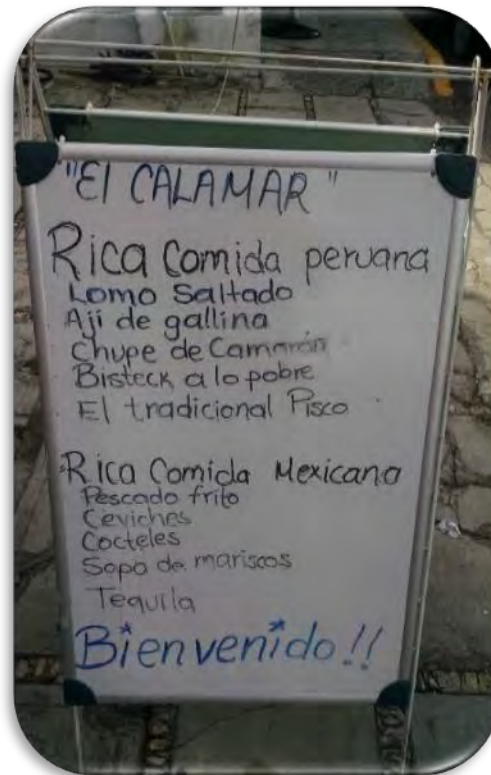 "El CALAMAR"
Rica Comida peruana
Lomo Saltado
Ají de gallina
Chupe de Camarón
Bisteck a lo pobre
El tradicional Pisco
Rica Comida Mexicana
Pescado frito
Ceviches
Cocteles
Sopa de mariscos
Tequila
Bienvenido!!